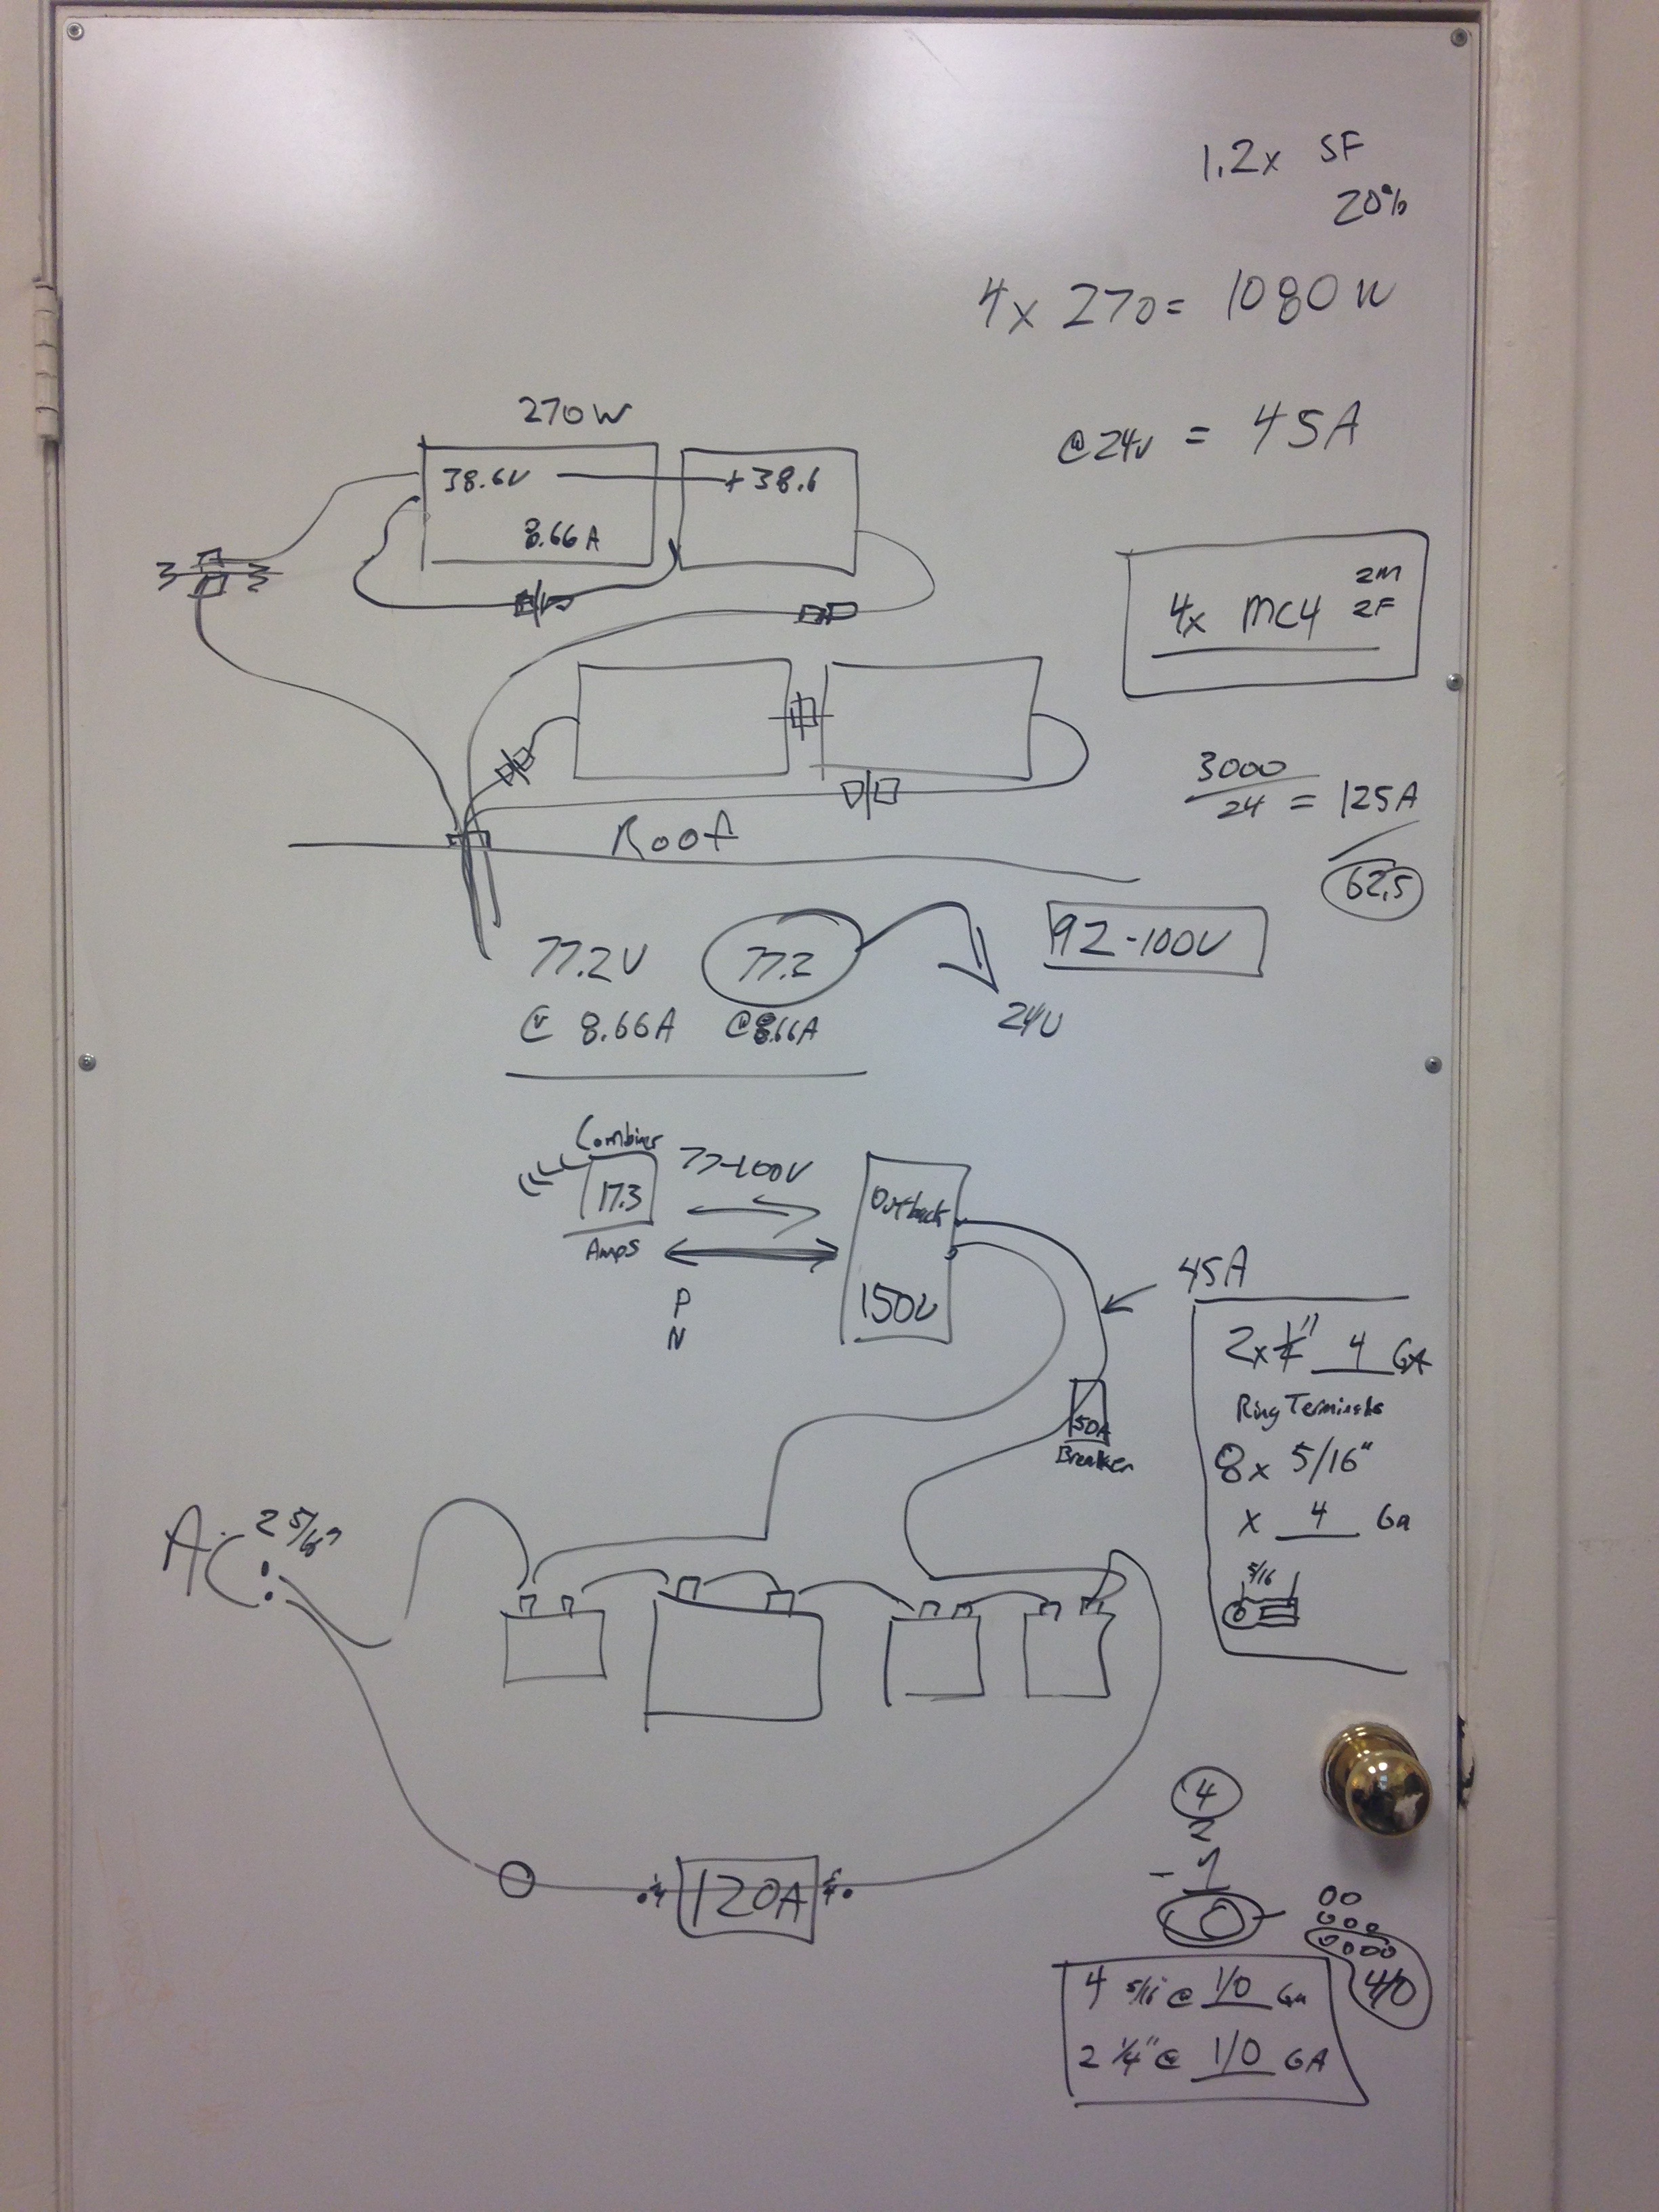 1.2x SF
20%
4x 270= 1080W
@24V = 45A
270W
38.6V
+38.6
8.66A
4x MC4
2M
2F
3000
24
= 125A
62.5
Roof
77.2V
77.2
92-100V
@ 8.66A
@8.66A
24V
Combiner
17.3
Amps
77-100V
P
N
Outback
150V
45A
50A
Breaker
4 GA
Ring Terminals
8x 5/16"
x 4 Ga
5/16
AC
120A
4
2
1
0
00
000
0000
4/0
4 5/16 @ 1/0 Ga
2 1/4" @ 1/0 GA